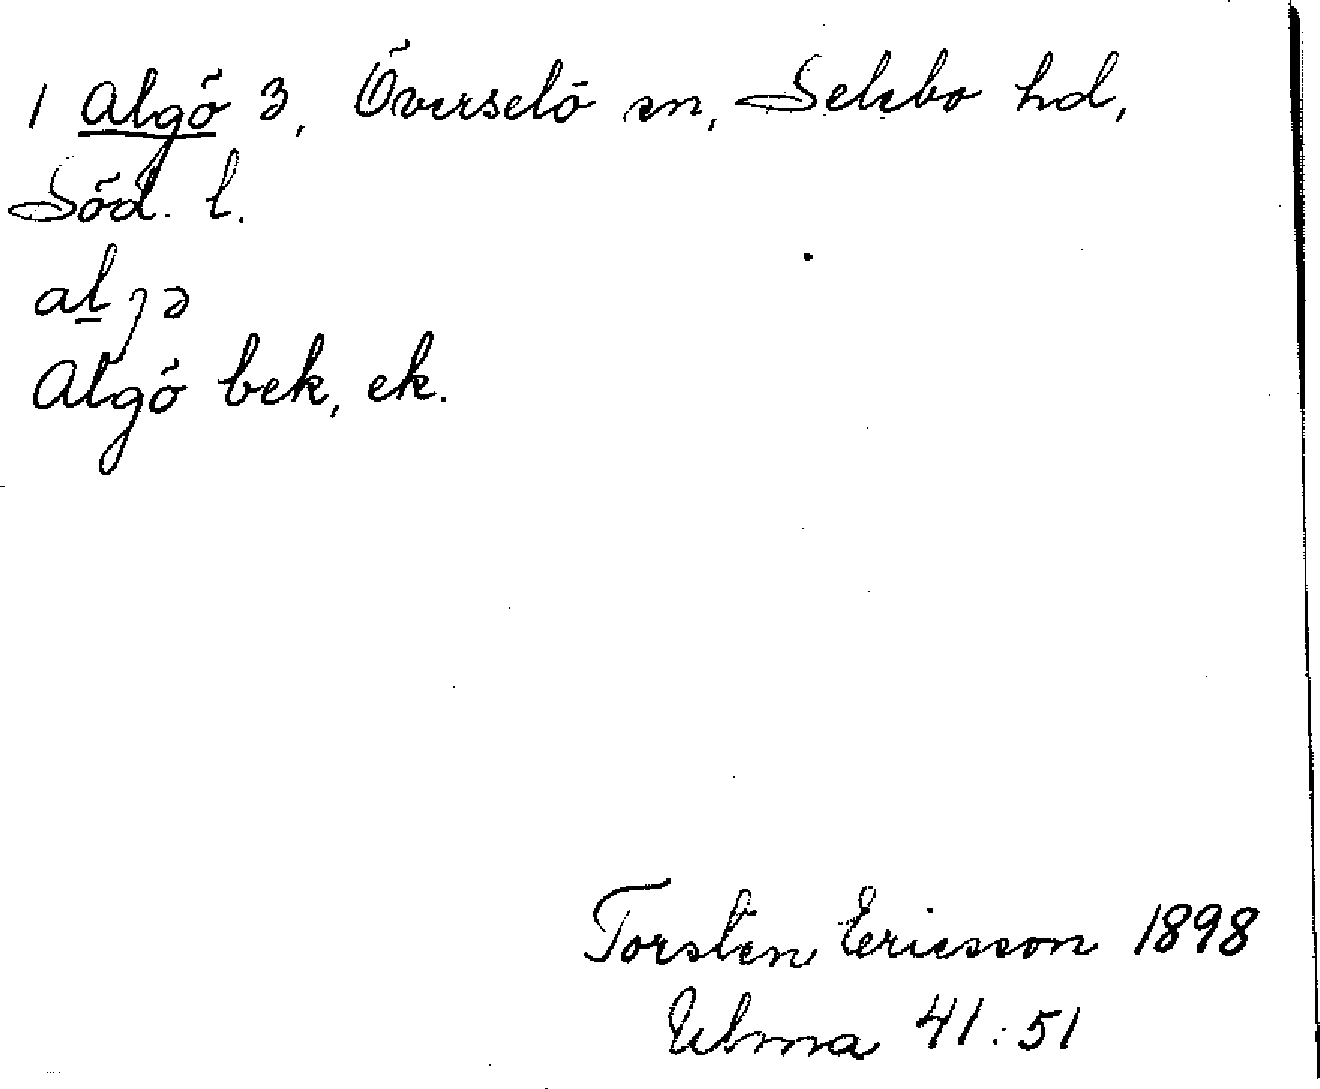 1 Algö 3, Överselö sn, Selebo hd,
Söd. l.
al̲ȷə
Algö bek, ek.
Torsten Ericsson 1898
Ulma 41:51